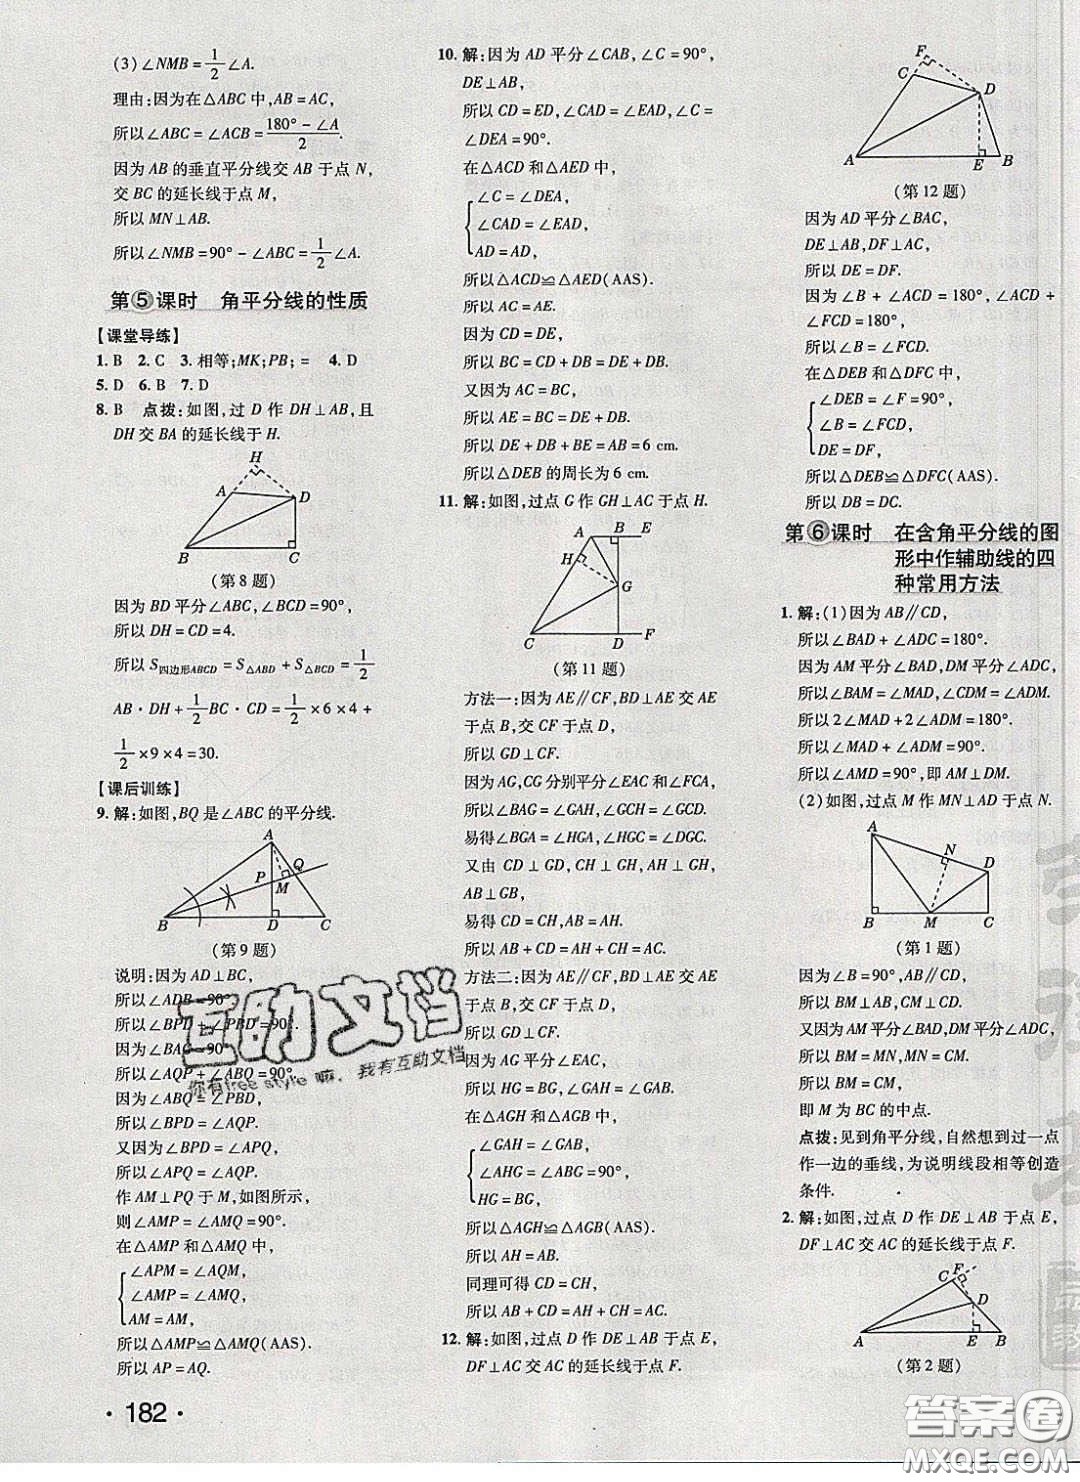 (3) ∠NMB = 1/2 ∠A.
理由:因为在△ABC 中,AB = AC,
所以∠ABC = ∠ACB = (180° − ∠A)/2.
因为 AB 的垂直平分线交 AB 于点 N,
交 BC 的延长线于点 M,
所以 MN⊥AB.
所以∠NMB = 90° − ∠ABC = 1/2 ∠A.
第⑤课时 角平分线的性质
【课堂导练】
1. B 2. C 3. 相等;MK;PB; = 4. D
5. D 6. B 7. D
8. B 点拨:如图,过 D 作 DH⊥AB,且
DH 交 BA 的延长线于 H.
H
A
D
B
C
(第 8 题)
因为 BD 平分∠ABC,∠BCD = 90°,
所以 DH = CD = 4.
所以 S四边形ABCD = S△ABD + S△BCD = 1/2
AB · DH + 1/2 BC · CD = 1/2 × 6 × 4 +
1/2 × 9 × 4 = 30.
【课后训练】
9. 解:如图,BQ 是∠ABC 的平分线.
A
P
Q
M
B
D
C
(第 9 题)
说明:因为 AD⊥BC,
所以∠ADB = 90°.
所以∠BPD + ∠PBD = 90°.
因为∠BAC = 90°,
所以∠AQP + ∠ABQ = 90°.
因为∠ABQ = ∠PBD,
所以∠BPD = ∠AQP.
又因为∠BPD = ∠APQ,
所以∠APQ = ∠AQP.
作 AM⊥PQ 于 M,如图所示,
则∠AMP = ∠AMQ = 90°.
在△AMP 和△AMQ 中,
∠APM = ∠AQM,
∠AMP = ∠AMQ,
AM = AM,
所以△AMP≌△AMQ(AAS).
所以 AP = AQ.
· 182 ·
10. 解:因为 AD 平分∠CAB,∠C = 90°,
DE⊥AB,
所以 CD = ED,∠CAD = ∠EAD,∠C =
∠DEA = 90°.
在△ACD 和△AED 中,
∠C = ∠DEA,
∠CAD = ∠EAD,
AD = AD,
所以△ACD≌△AED(AAS).
所以 AC = AE,
又因为 CD = DE,
所以 BC = CD + DB = DE + DB.
又因为 AC = BC,
所以 AE = BC = DE + DB.
所以 DE + DB + BE = AB = 6 cm.
所以△DEB 的周长为 6 cm.
11. 解:如图,过点 G 作 GH⊥AC 于点 H.
A
B
E
H
G
C
D
F
(第 11 题)
方法一:因为 AE∥CF,BD⊥AE 交 AE
于点 B,交 CF 于点 D,
所以 GD⊥CF.
因为 AG,CG 分别平分∠EAC 和∠FCA,
所以∠BAG = ∠GAH,∠HCG = ∠GCD.
易得∠BGA = ∠HGA,∠HGC = ∠DGC.
又由 CD⊥GD, CH⊥GH, AH⊥GH,
AB⊥GB,
易得 CD = CH,AH = AB,
所以 AB + CD = AH + CH = AC.
方法二:因为 AE∥CF,BD⊥AE 交 AE
于点 B,交 CF 于点 D,
所以 GD⊥CF.
因为 AG 平分∠EAC,
所以 HG = BG,∠GAH = ∠GAB.
在△AGH 和△AGB 中,
∠GAH = ∠GAB,
∠AHG = ∠ABG = 90°,
HG = BG,
所以△AGH≌△AGB(AAS).
所以 AH = AB.
同理可得 CD = CH,
所以 AB + CD = AH + CH = AC.
12. 解:如图,过点 D 作 DE⊥AB 于点 E,
DF⊥AC 交 AC 的延长线于点 F.
F
C
D
A
E
B
(第 12 题)
因为 AD 平分∠BAC,
DE⊥AB,DF⊥AC,
所以 DE = DF.
因为∠B + ∠ACD = 180°, ∠ACD +
∠FCD = 180°,
所以∠B = ∠FCD.
在△DEB 和△DFC 中,
∠DEB = ∠F = 90°,
∠B = ∠FCD,
DE = DF,
所以△DEB≌△DFC(AAS).
所以 DB = DC.
第⑥课时 在含角平分线的图
形中作辅助线的四
种常用方法
1. 解:(1)因为 AB∥CD,
所以∠BAD + ∠ADC = 180°.
因为 AM 平分∠BAD,DM 平分∠ADC,
所以∠BAM = ∠MAD,∠CDM = ∠ADM.
所以 2∠MAD + 2∠ADM = 180°.
所以∠MAD + ∠ADM = 90°.
所以∠AMD = 90°,即 AM⊥DM.
(2)如图,过点 M 作 MN⊥AD 于点 N.
A
N
D
B
M
C
(第 1 题)
因为∠B = 90°,AB∥CD,
所以 BM⊥AB,MC⊥CD.
又因为 AM 平分∠BAD,DM 平分∠ADC,
所以 BM = MN,MN = CM.
所以 BM = CM,
即 M 为 BC 的中点.
点拨:见到角平分线,自然想到过一点
作一边的垂线,为说明线段相等创造
条件.
2. 解:如图,过点 D 作 DE⊥AB 于点 E,
DF⊥AC 交 AC 的延长线于点 F.
C
F
D
A
E
B
(第 2 题)
互助文档
你有free style嘛,我有互助文档
答案圈
MXQE.COM